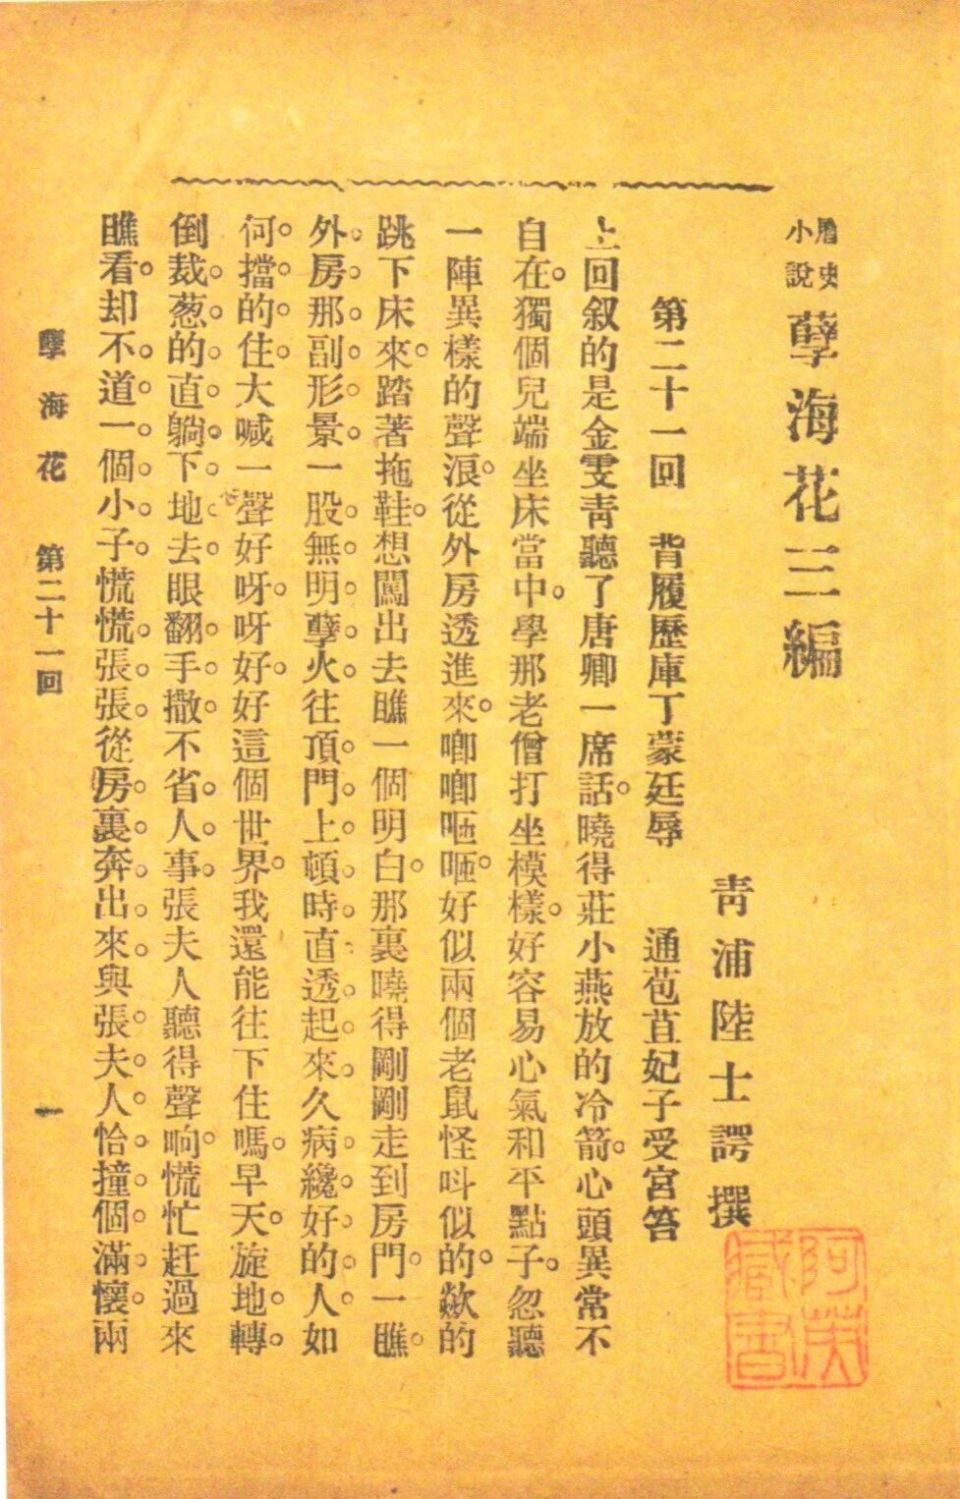 歷史小說 孽海花三編
青浦陸士諤撰
第二十一回 背履歷庫丁蒙廷辱 通苞苴妃子受宮笞
上回叙的是金雯靑聽了唐卿一席話。曉得莊小燕放的冷箭。心頭異常不
自在。獨個兒端坐床當中。學那老僧打坐模樣。好容易心氣和平點子。忽聽
一陣異樣的聲浪。從外房透進來。啷啷咂咂。好似兩個老鼠怪呌似的。歘的
跳下床來。踏著拖鞋。想闖出去瞧一個明白。那裏曉得剛剛走到房門。一瞧。
外房那副形景。一股無明孽火。往頂門上頓時直透起來。久病纔好的人。如
何擋的住。大喊一聲好呀。呀好。好這個世界。我還能往下住嗎。早天旋地轉。
倒栽葱的直躺下地去。眼翻手撒。不省人事。張夫人聽得聲响。慌忙赶過來
瞧看。却不道一個小子。慌慌張張從房裏奔出來。與張夫人恰撞個滿懷。兩
孽海花 第二十一回 一
阿英藏書